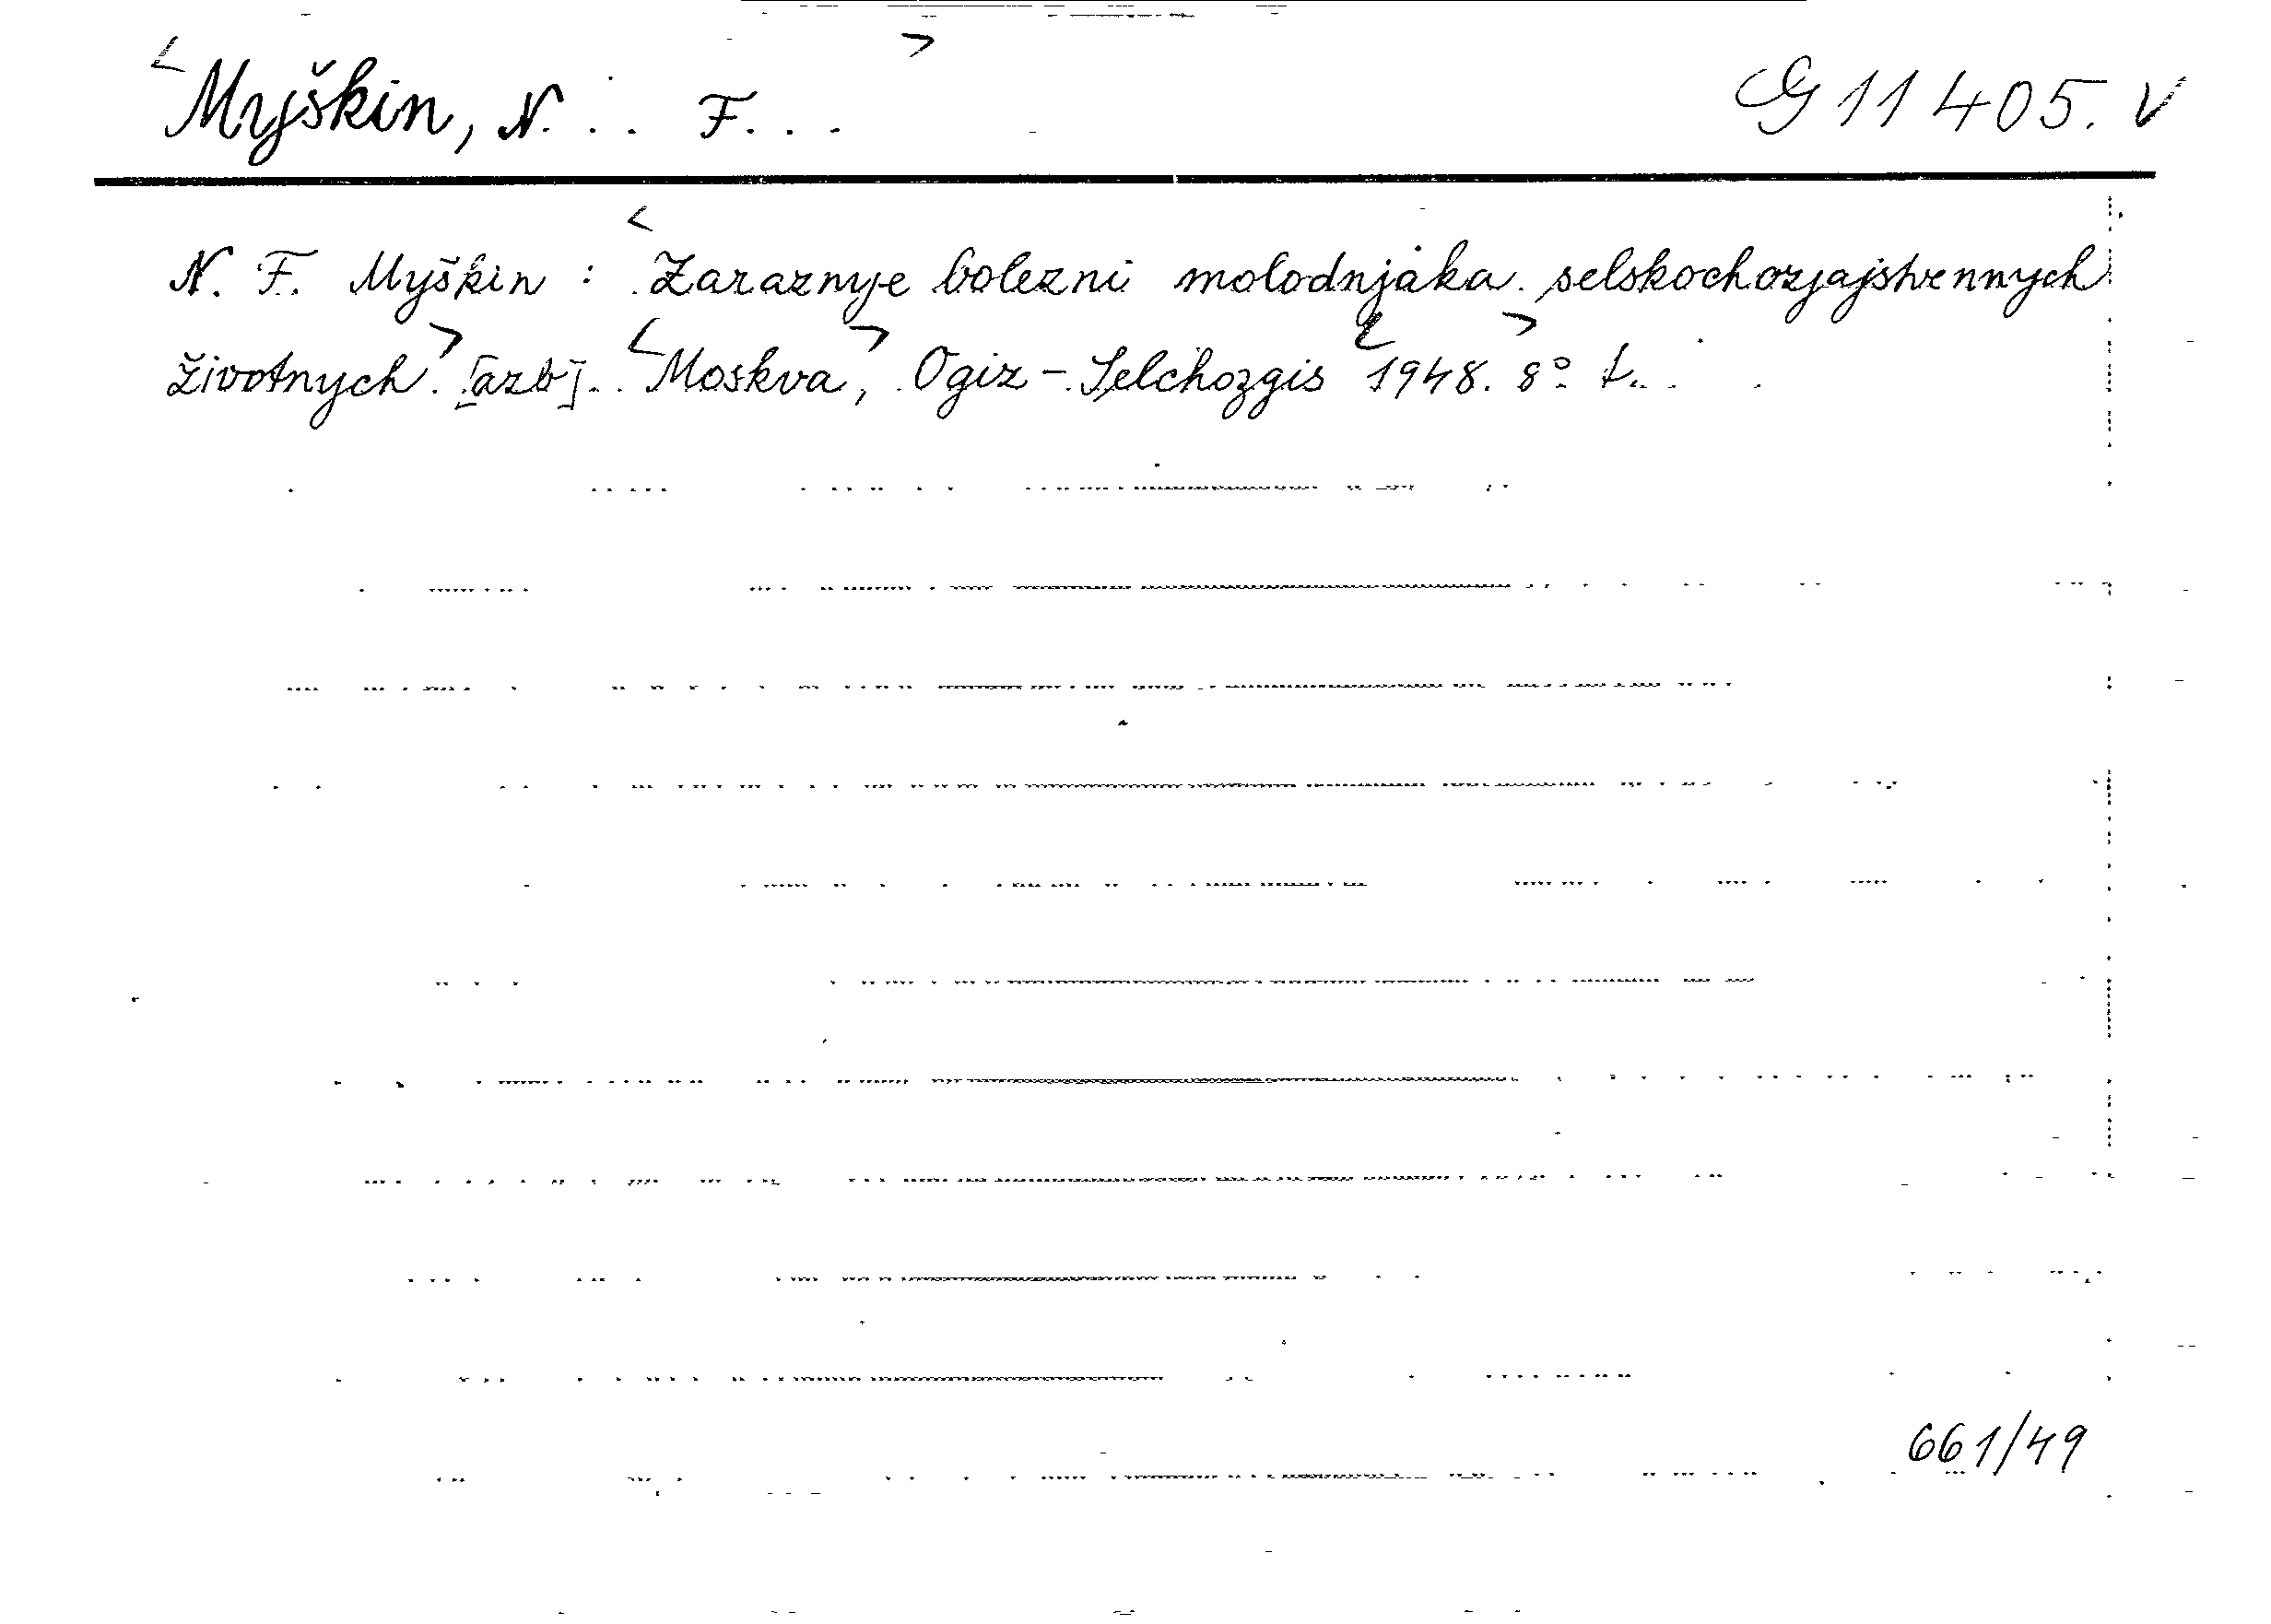 <Myškin, N... F...> G 11 405. V
N. F. Myškin : <Zaraznyje bolezni molodnjaka selskochozjajstvennych
životnych.> [azb]. <Moskva,> Ogiz - Selchozgis <1948.> 8° t.
661/49